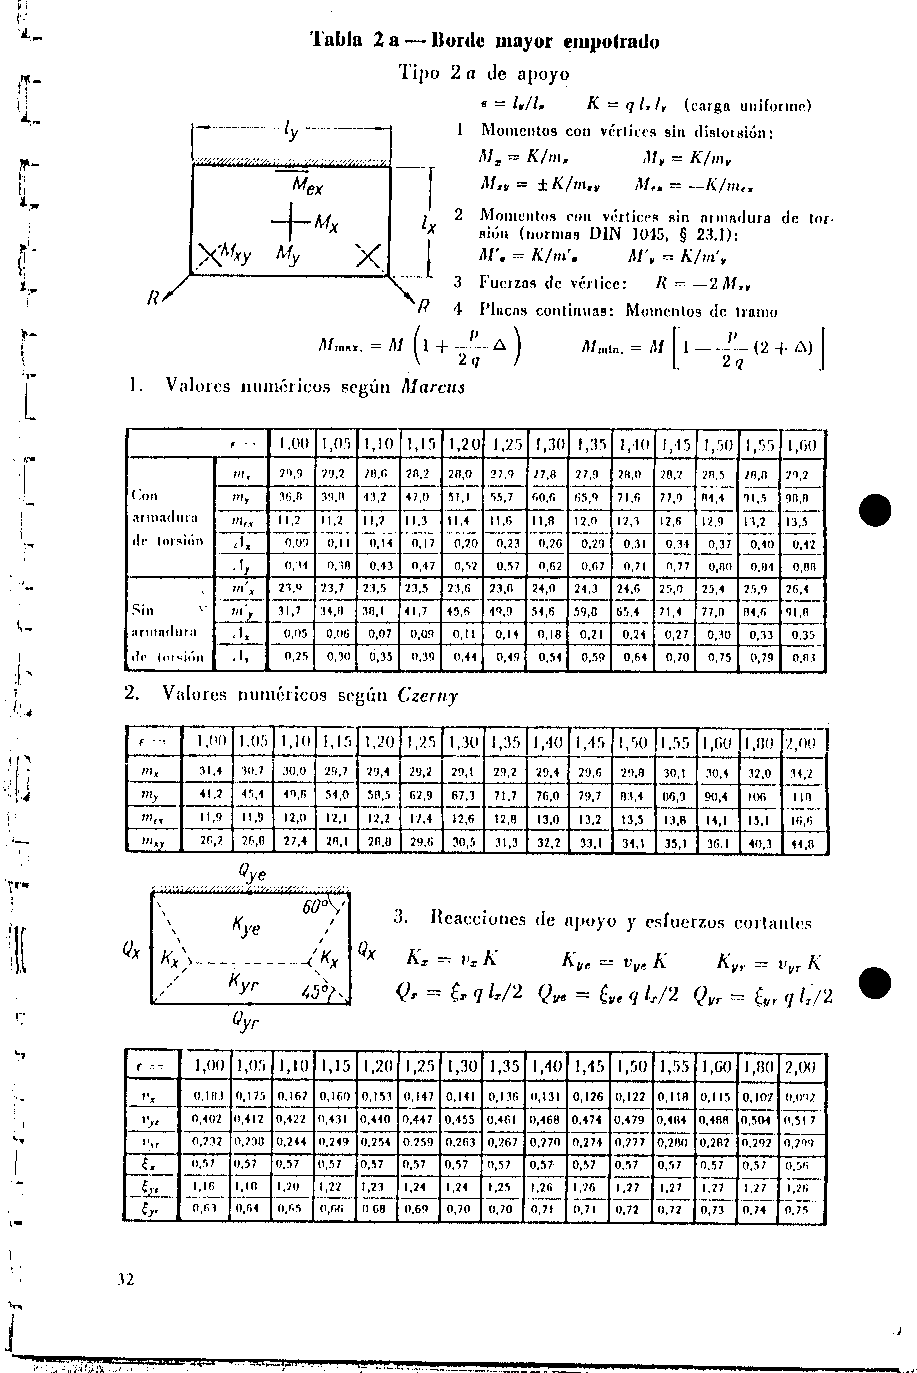 Tabla 2 a — Borde mayor empotrado
Tipo 2 a de apoyo
ε = ly/lx K = q lx ly (carga uniforme)
1 Momentos con vértices sin distorsión:
Mx = K/mx My = K/my
Mxy = ±K/mxy Mex = —K/mex
2 Momentos con vértices sin armadura de tor-
sión (normas DIN 1045, § 23.1):
M'x = K/m'x M'y = K/m'y
3 Fuerzas de vértice: R = —2 Mxy
4 Placas continuas: Momentos de tramo
ly
Mex
Mx
lx
Mxy My
R R
Mmax. = M (1 + p/2q Δ) Mmin. = M [1 — p/2q (2 + Δ)]
1. Valores numéricos según Marcus
ε = 1,00 1,05 1,10 1,15 1,20 1,25 1,30 1,35 1,40 1,45 1,50 1,55 1,60
Con armadura de torsión
mx 29,9 29,2 28,6 28,2 28,0 27,9 27,8 27,9 28,0 28,2 28,5 28,8 29,2
my 36,8 39,8 43,2 47,0 51,1 55,7 60,6 65,9 71,6 77,9 84,4 91,5 98,8
mex 11,2 11,2 11,2 11,3 11,4 11,6 11,8 12,0 12,3 12,6 12,9 13,2 13,5
Δx 0,09 0,11 0,14 0,17 0,20 0,23 0,26 0,29 0,31 0,34 0,37 0,40 0,42
Δy 0,34 0,38 0,43 0,47 0,52 0,57 0,62 0,67 0,71 0,77 0,80 0,84 0,88
Sin armadura de torsión
m'x 23,9 23,7 23,5 23,5 23,6 23,8 24,0 24,3 24,6 25,0 25,4 25,9 26,4
m'y 31,7 34,8 38,1 41,7 45,6 49,9 54,6 59,8 65,4 71,4 77,8 84,6 91,8
Δx 0,05 0,06 0,07 0,09 0,11 0,14 0,18 0,21 0,24 0,27 0,30 0,33 0,35
Δy 0,25 0,30 0,35 0,39 0,44 0,49 0,54 0,59 0,64 0,70 0,75 0,79 0,83
2. Valores numéricos según Czerny
ε = 1,00 1,05 1,10 1,15 1,20 1,25 1,30 1,35 1,40 1,45 1,50 1,55 1,60 1,80 2,00
mx 31,4 30,7 30,0 29,7 29,4 29,2 29,1 29,2 29,4 29,6 29,8 30,1 30,4 32,0 34,2
my 41,2 45,4 49,6 54,0 58,5 62,9 67,3 71,7 76,0 79,7 83,4 86,9 90,4 106 118
mex 11,9 11,9 12,0 12,1 12,2 12,4 12,6 12,8 13,0 13,2 13,5 13,8 14,1 15,1 16,6
mxy 26,2 26,8 27,4 28,1 28,8 29,6 30,5 31,3 32,2 33,1 34,1 35,1 36,1 40,3 44,8
Qye
60°
Kye
Qx Kx Kx Qx
Kyr 45°
Qyr
3. Reacciones de apoyo y esfuerzos cortantes
Kx = νx K Kye = νye K Kyr = νyr K
Qx = ξx q lx/2 Qye = ξye q lx/2 Qyr = ξyr q lx/2
ε = 1,00 1,05 1,10 1,15 1,20 1,25 1,30 1,35 1,40 1,45 1,50 1,55 1,60 1,80 2,00
νx 0,183 0,175 0,167 0,160 0,153 0,147 0,141 0,136 0,131 0,126 0,122 0,118 0,115 0,102 0,092
νye 0,402 0,412 0,422 0,431 0,440 0,447 0,455 0,461 0,468 0,474 0,479 0,484 0,488 0,504 0,517
νyr 0,232 0,238 0,244 0,249 0,254 0,259 0,263 0,267 0,270 0,274 0,277 0,280 0,282 0,292 0,299
ξx 0,57 0,57 0,57 0,57 0,57 0,57 0,57 0,57 0,57 0,57 0,57 0,57 0,57 0,57 0,56
ξye 1,16 1,18 1,20 1,22 1,23 1,24 1,24 1,25 1,26 1,26 1,27 1,27 1,27 1,27 1,26
ξyr 0,63 0,64 0,65 0,66 0,68 0,69 0,70 0,70 0,71 0,71 0,72 0,72 0,73 0,74 0,75
32